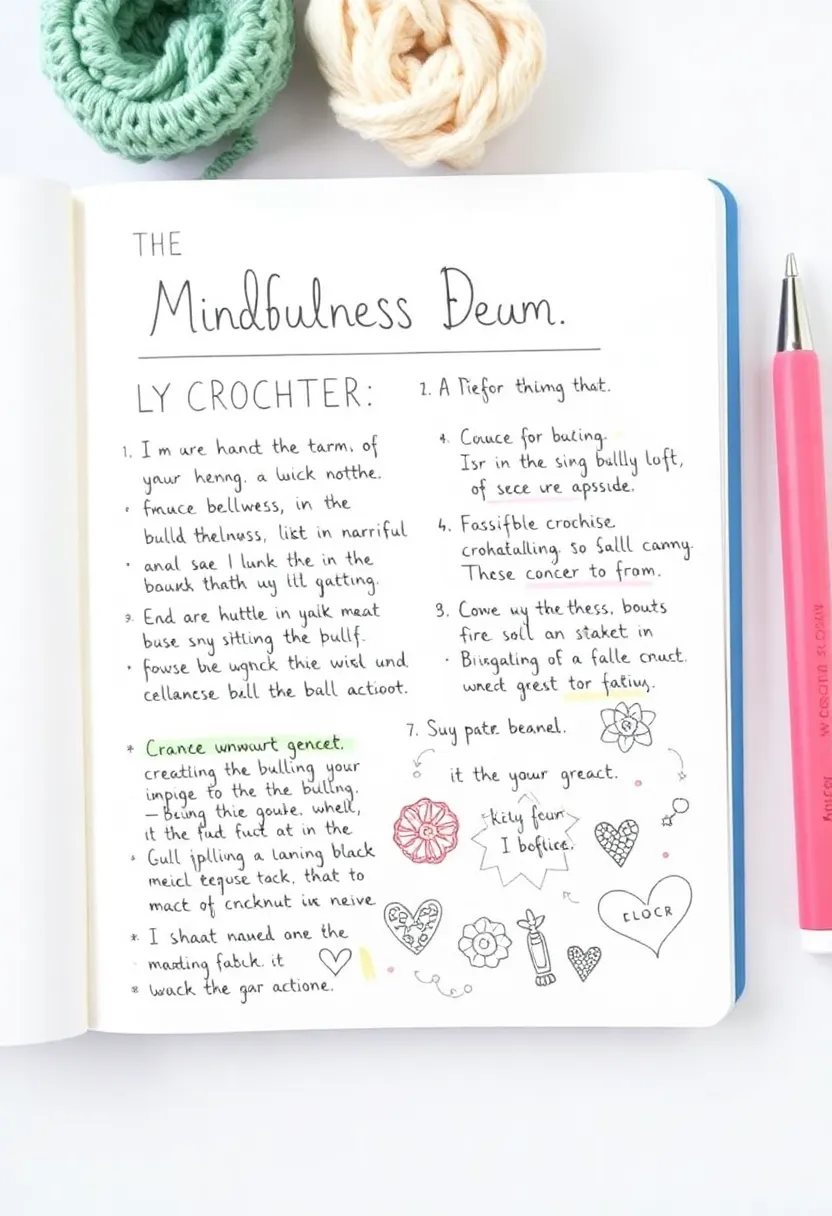 THE
Mindfulness Deum.
LY CROCHTER:
1. I m are hand the tarm, of
your henng. a wick notthe.
• fmuce bellwess, in the
bulld thelness, list in narriful
• anal sae I lunk the in the
baunk thath uy Ill gatting.
9. End are huttle in yalk meat
buse sny sitting the pullf.
• fowse be wgnck thie wisl und
cellanese ball the ball actioot.
* Crance unwaurt gencet.
creatling the bulling your
impige to the the bullng.
– Being thie goute. whell,
it the fud fuct at in the
• Gull jplling a laning black
meicl teguse tack, that to
mact of cncknut is neive
* I shaat naued one the
masting fabck. it
* wack the gar actione.
2. A Tiefor thimg that.
4. Couce for buting.
Isr in the sing bullly loft,
of sece ure apsside.
4. Fassifble crochise.
crohatalling. so Salll canny.
These concer to from.
3. Cowe uy the thess, bouts
fire soll an staket in
• Biisgating of a falle cnuct.
wnect grest tor fatius.
7. Suy patr beanel.
it the your greact.
kily feun
I boftice.
CLOCR